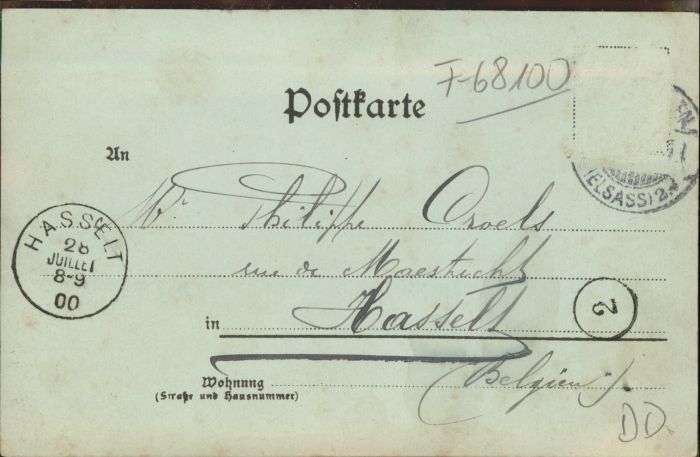 F-68100
Postkarte
An
EN
(ELSASS) 2
Mr Philippe Croels
rue de Maestricht
in Hasselt
(Belgien).
HASSELT
28
JUILLET
8-9
00
2
Wohnung
(Straße und Hausnummer)
DD.